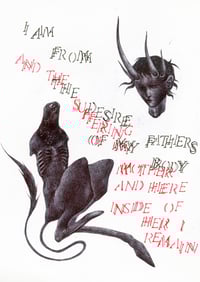 I AM
FROM
THE
DESIRE
OF MY FATHERS
BODY
AND THE
SUFFE
RING
OF MY
MOTHER
AND HERE
INSIDE OF
HER I
REMAIN